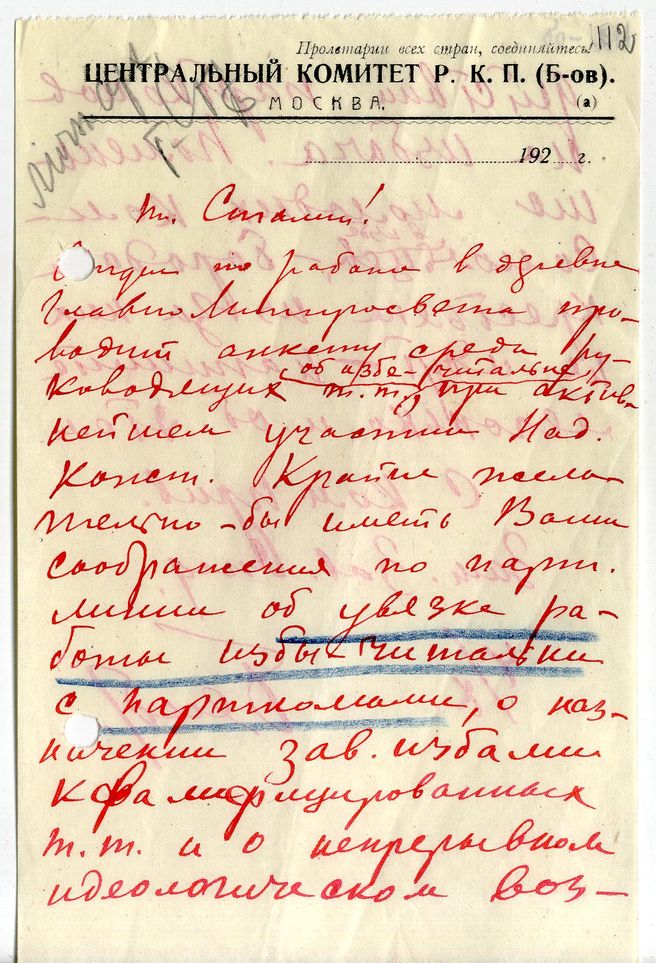 112
Пролетарии всех стран, соединяйтесь!
ЦЕНТРАЛЬНЫЙ КОМИТЕТ Р. К. П. (Б-ов).
МОСКВА.
(а)
192 г.
т. Сталин!
Отдел по работе в деревне
Главполитпросвета про-
водит анкету среди ру-
об избе-читальне
ководящих т.т., при актив-
нейшем участии Над.
Конст. Крайне жела-
тельно-бы иметь Ваши
соображения по парт.
линии об увязке ра-
боты избы-читальни
с парткомами, о наз-
начении зав. избами
квалифицированных
т.т. и о непрерывном
идеологическом воз-